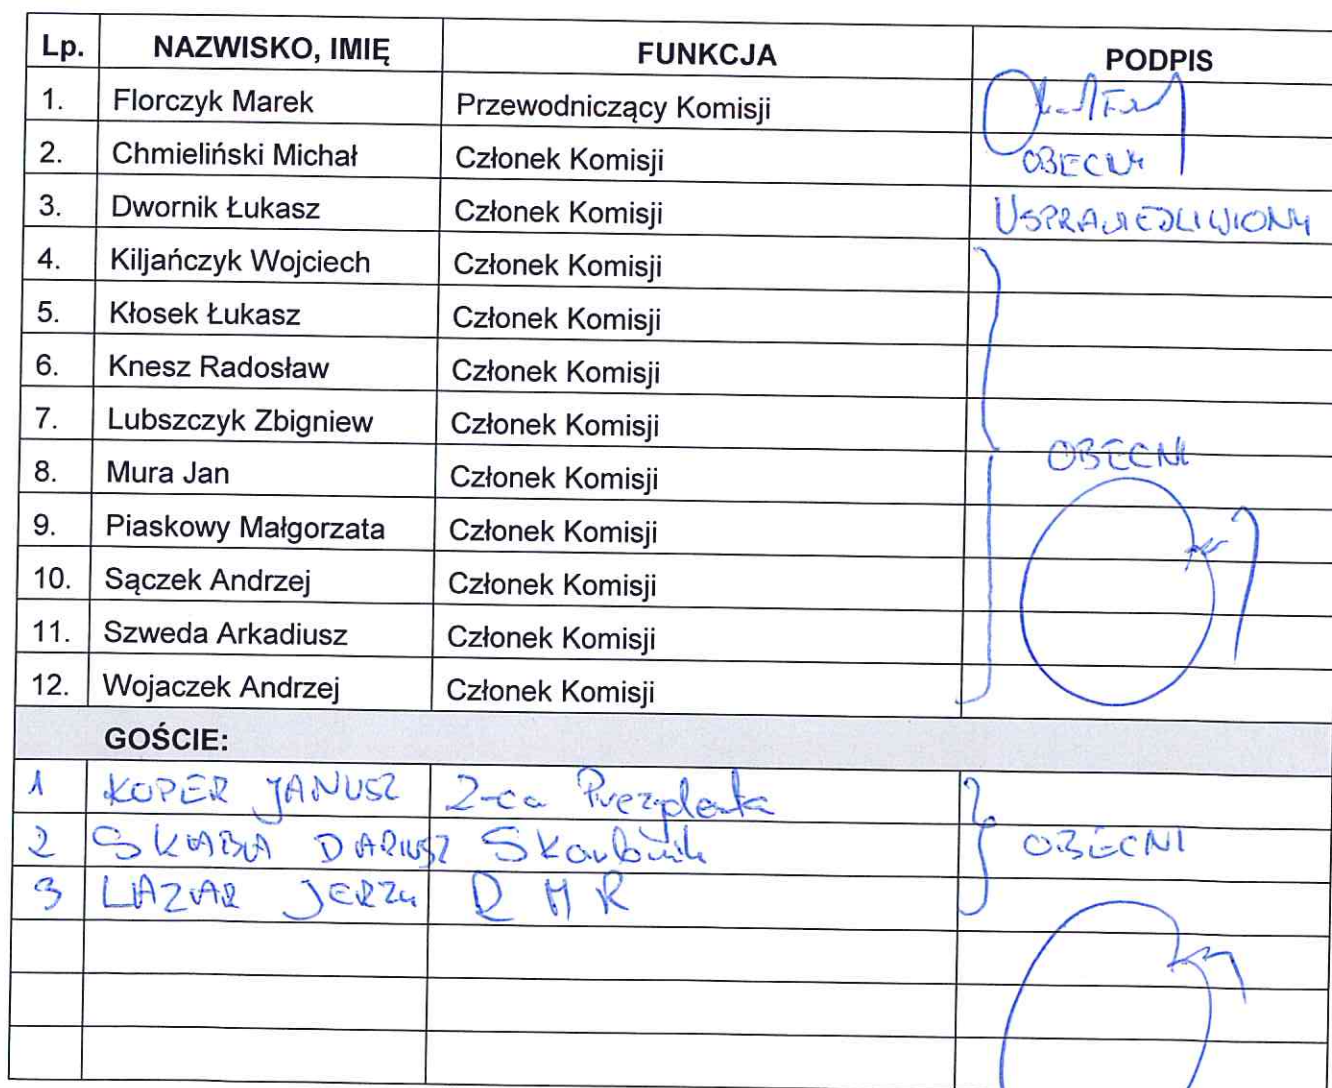 Lp. NAZWISKO, IMIĘ FUNKCJA PODPIS
1. Florczyk Marek Przewodniczący Komisji
2. Chmieliński Michał Członek Komisji OBECNY
3. Dwornik Łukasz Członek Komisji USPRAWIEDLIWIONY
4. Kiljańczyk Wojciech Członek Komisji
5. Kłosek Łukasz Członek Komisji
6. Knesz Radosław Członek Komisji
7. Lubszczyk Zbigniew Członek Komisji
8. Mura Jan Członek Komisji OBECNI
9. Piaskowy Małgorzata Członek Komisji
10. Sączek Andrzej Członek Komisji
11. Szweda Arkadiusz Członek Komisji
12. Wojaczek Andrzej Członek Komisji
GOŚCIE:
1 KOPER JANUSZ Z-ca Prezydenta
2 SKABA DARIUSZ Skarbnik OBECNI
3 LAZAR JERZY RMR